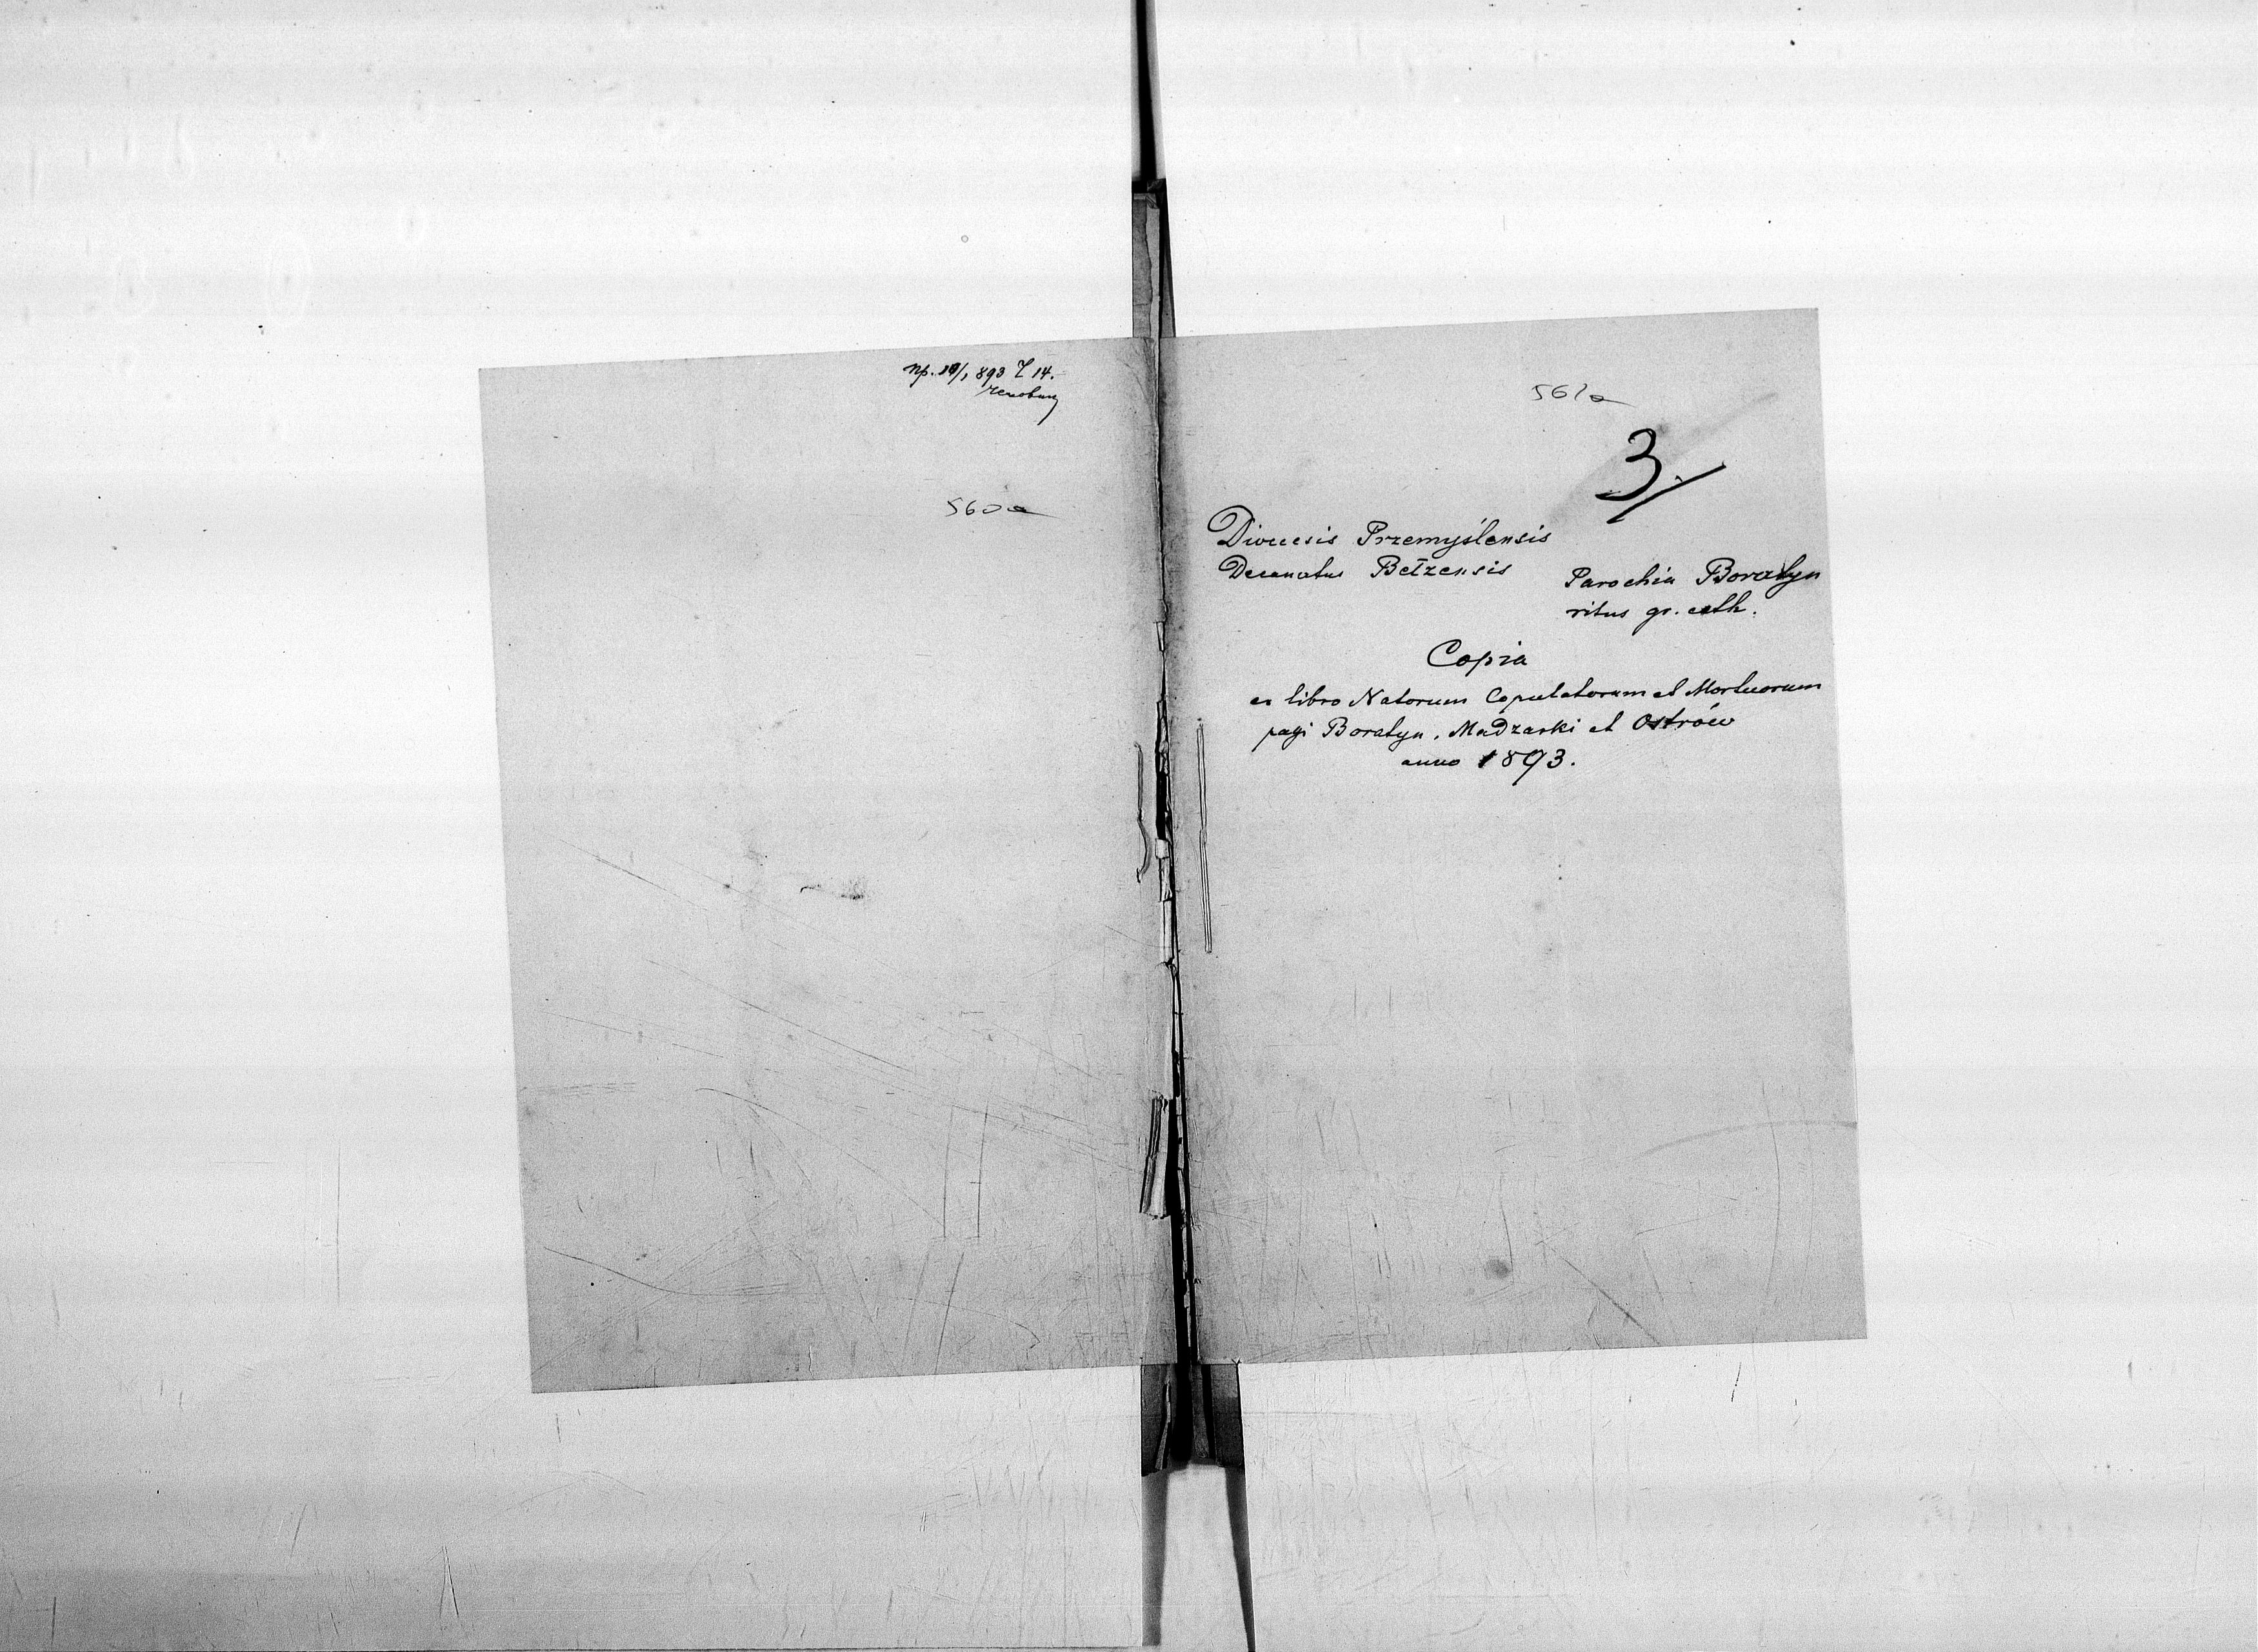 np. 10/1 893 L 14.
560a
561a
3/
Diocesis Przemyślensis
Decanatus Bełzensis
Parochia Boratyn
ritus gr. cath.
Copia
ex libro Natorum Copulatorum et Mortuorum
pagi Boratyn, Madzarki et Ostrów
anno 1893.